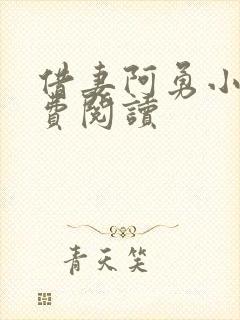 借妻阿勇小
費閱讀
青天笑